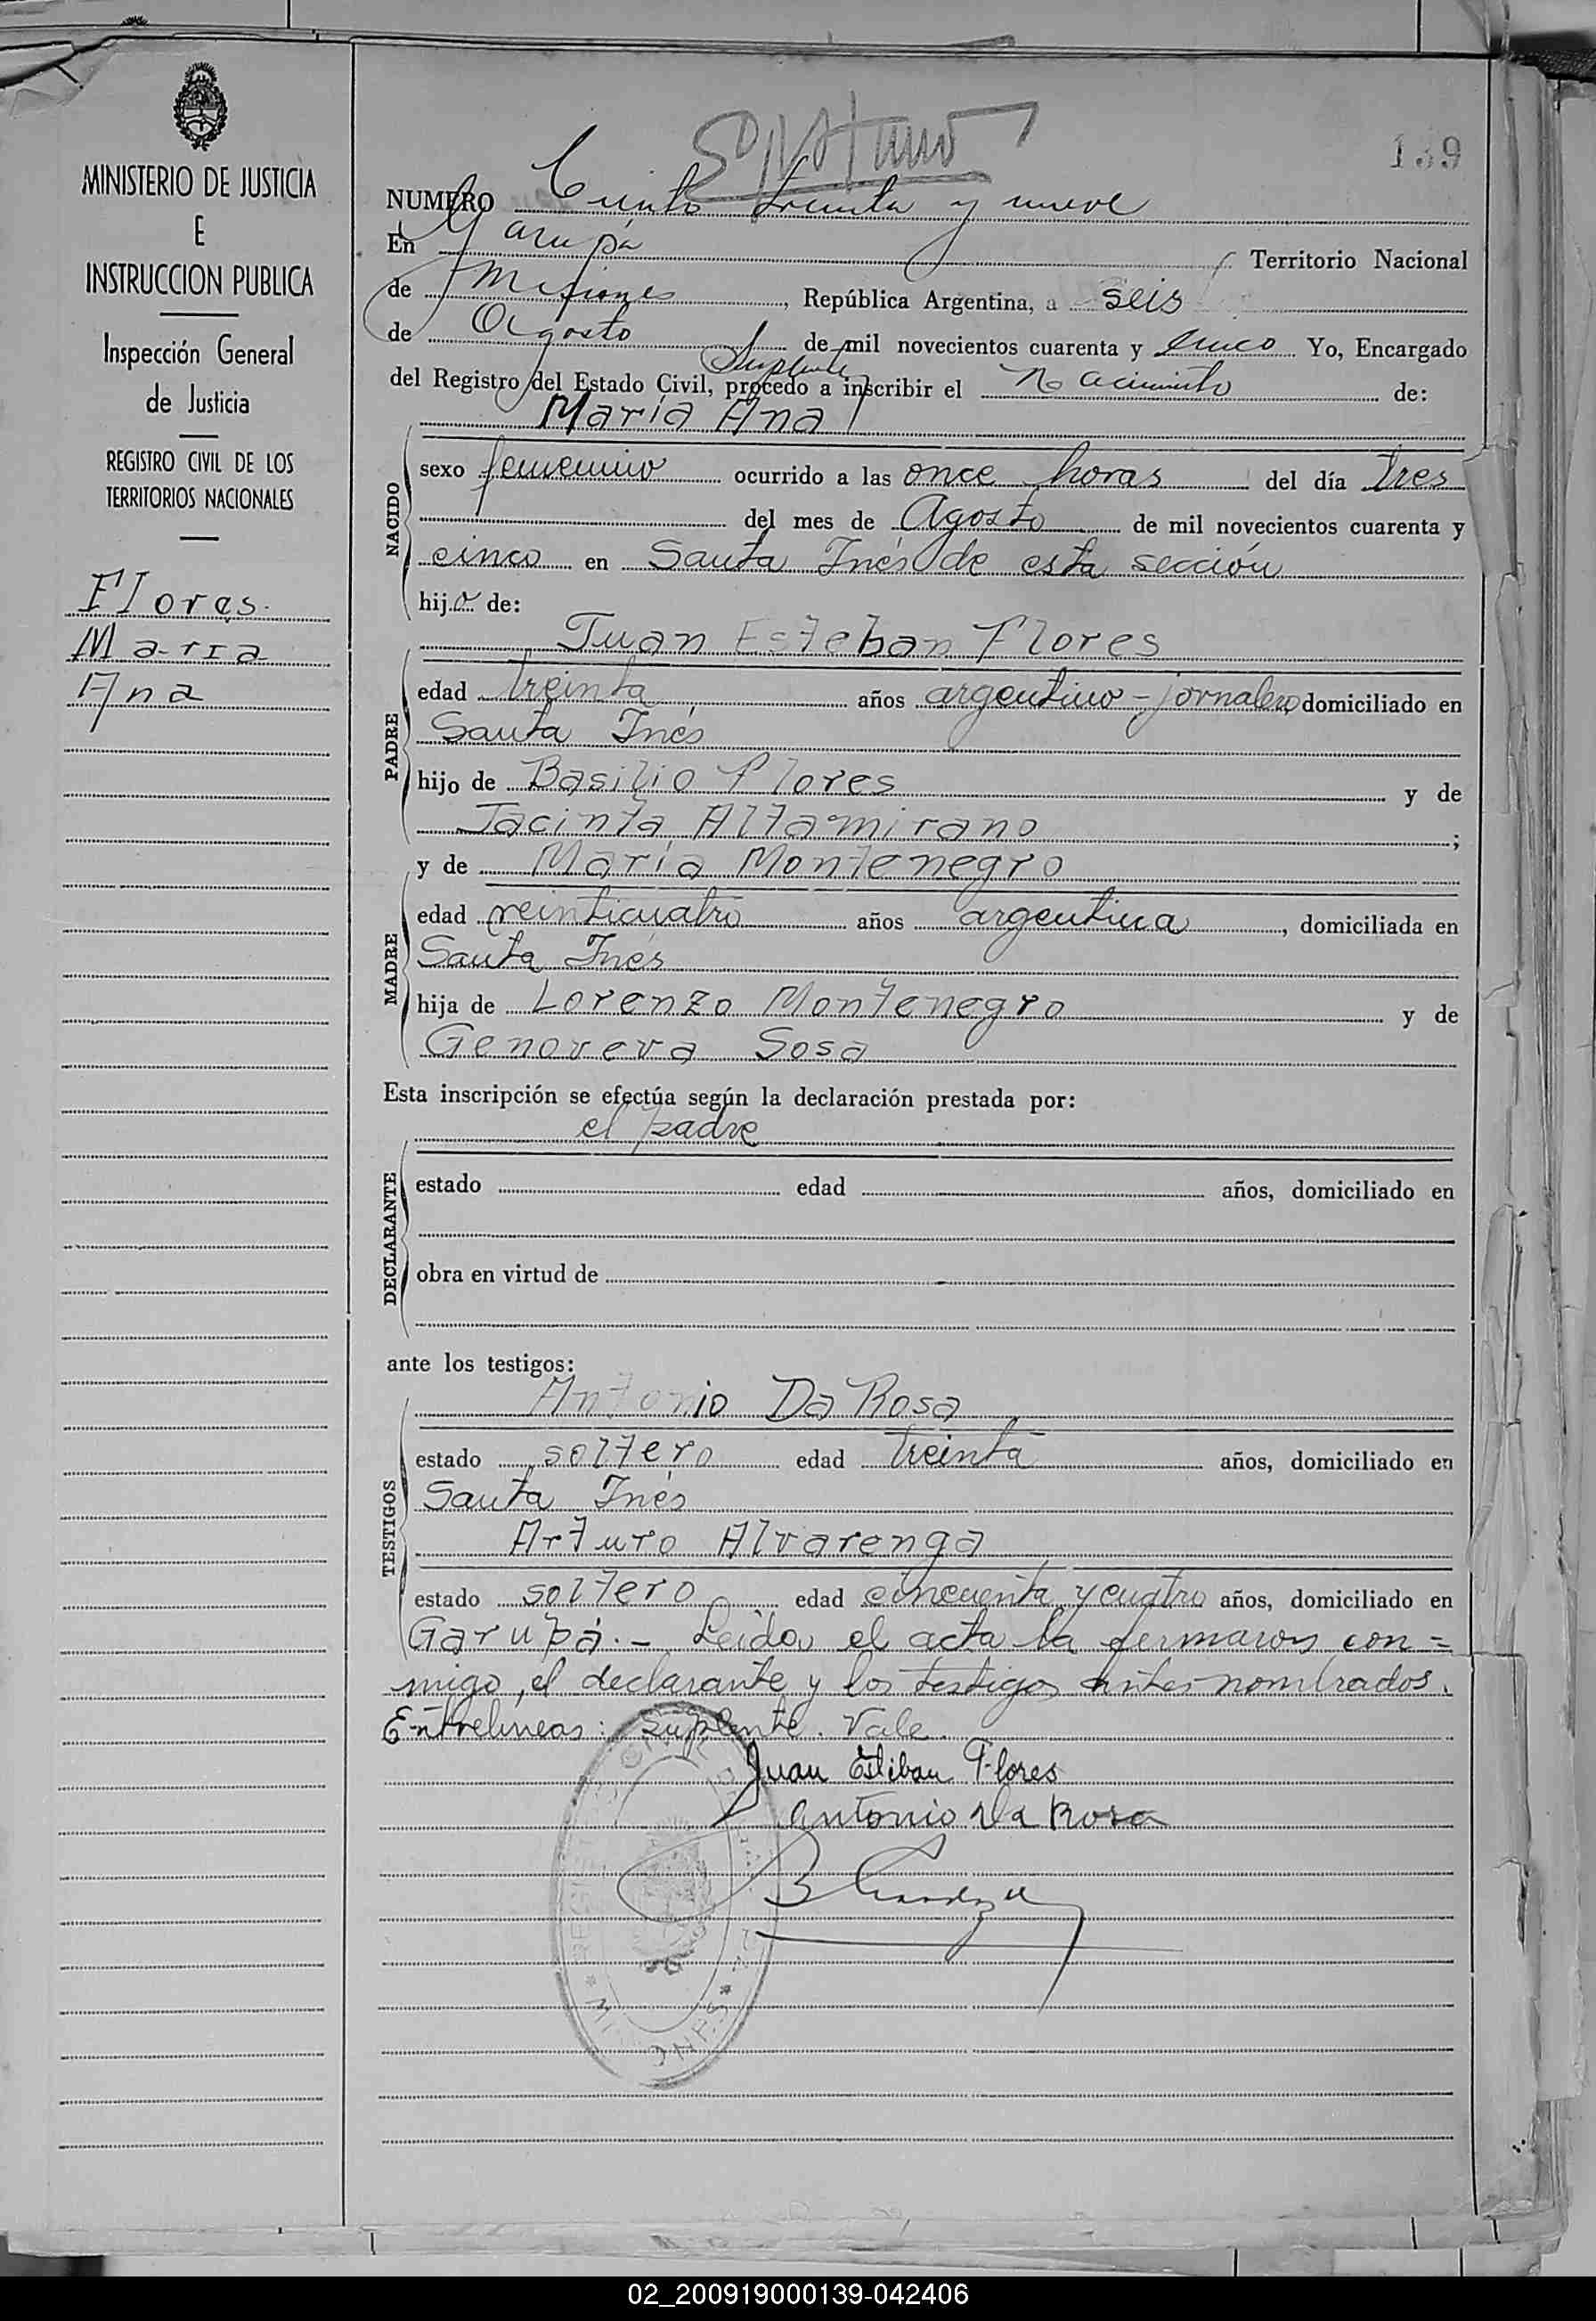 139
MINISTERIO DE JUSTICIA
E
INSTRUCCION PUBLICA
Inspección General
de Justicia
REGISTRO CIVIL DE LOS
TERRITORIOS NACIONALES
Flores
María
Ana
NUMERO Ciento treinta y nueve
En Garupá Territorio Nacional
de Misiones, República Argentina, a seis
de Agosto de mil novecientos cuarenta y cinco Yo, Encargado
Suplente
del Registro del Estado Civil, procedo a inscribir el Nacimiento de:
María Ana
NACIDO
sexo femenino ocurrido a las once horas del día tres
del mes de Agosto de mil novecientos cuarenta y
cinco en Santa Inés de esta sección
hija de:
Juan Esteban Flores
PADRE
edad treinta años argentino - jornalero domiciliado en
Santa Inés
hijo de Basilio Flores y de
Jacinta Altamirano ;
y de María Montenegro
MADRE
edad veinticuatro años argentina, domiciliada en
Santa Inés
hija de Lorenzo Montenegro y de
Genoveva Sosa
Esta inscripción se efectúa según la declaración prestada por:
el padre
DECLARANTE
estado edad años, domiciliado en
obra en virtud de
ante los testigos:
Antonio Da Rosa
TESTIGOS
estado soltero edad treinta años, domiciliado en
Santa Inés
Arturo Alvarenga
estado soltero edad cincuenta y cuatro años, domiciliado en
Garupá. - Leida el acta la firmaron con=
migo, el declarante y los testigos antes nombrados.
Entrelineas: Suplente. Vale.
Juan Esteban Flores
Antonio Da Rosa
02_200919000139-042406